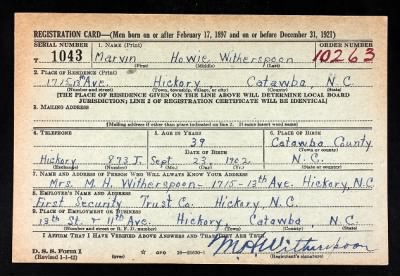 REGISTRATION CARD—(Men born on or after February 17, 1897 and on or before December 31, 1921)
SERIAL NUMBER 1. NAME (Print) ORDER NUMBER
T 1043 Marvin Howie Witherspoon 10263
(First) (Middle) (Last)
2. PLACE OF RESIDENCE (Print)
1715 13th Ave. Hickory Catawba N.C.
(Number and street) (Town, township, village, or city) (County) (State)
[THE PLACE OF RESIDENCE GIVEN ON THE LINE ABOVE WILL DETERMINE LOCAL BOARD
JURISDICTION; LINE 2 OF REGISTRATION CERTIFICATE WILL BE IDENTICAL]
3. MAILING ADDRESS
[Mailing address if other than place indicated on line 2. If same insert word same]
4. TELEPHONE 5. AGE IN YEARS 6. PLACE OF BIRTH
39 Catawba County
DATE OF BIRTH (Town or county)
Hickory 873J. Sept. 23, 1902 N.C.
(Exchange) (Number) (Mo.) (Day) (Yr.) (State or country)
7. NAME AND ADDRESS OF PERSON WHO WILL ALWAYS KNOW YOUR ADDRESS
Mrs. M. H. Witherspoon - 1715-13th Ave. Hickory, N.C.
8. EMPLOYER'S NAME AND ADDRESS
First Security Trust Co. Hickory, N.C.
9. PLACE OF EMPLOYMENT OR BUSINESS
13th St. & 11th Ave. Hickory Catawba N.C.
(Number and street or R. F. D. number) (Town) (County) (State)
I AFFIRM THAT I HAVE VERIFIED ABOVE ANSWERS AND THAT THEY ARE TRUE.
D. S. S. Form 1
(Revised 1-1-42) (over) GPO
M H Witherspoon